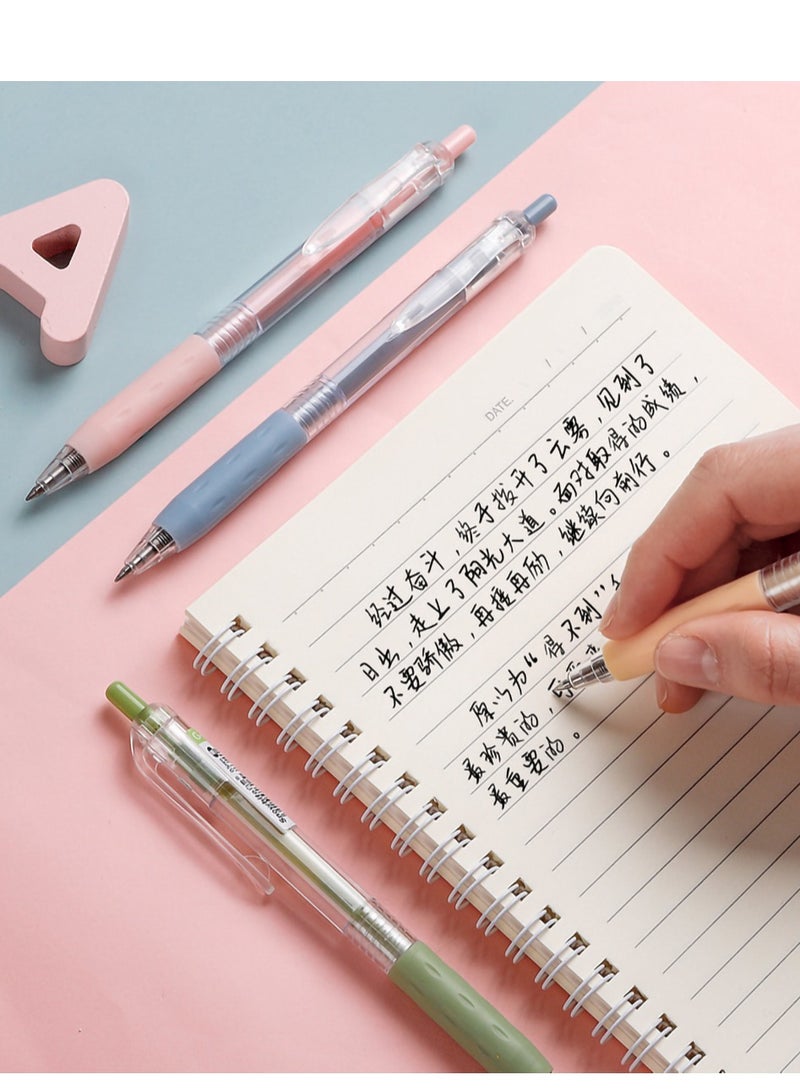 DATE.
经过奋斗，终于拨开了云雾，见到了
日出，走上了阳光大道。面对取得的成绩，
不要骄傲，再接再励，继续向前行。
原以为“得不到”
最珍贵的，
最重要的。